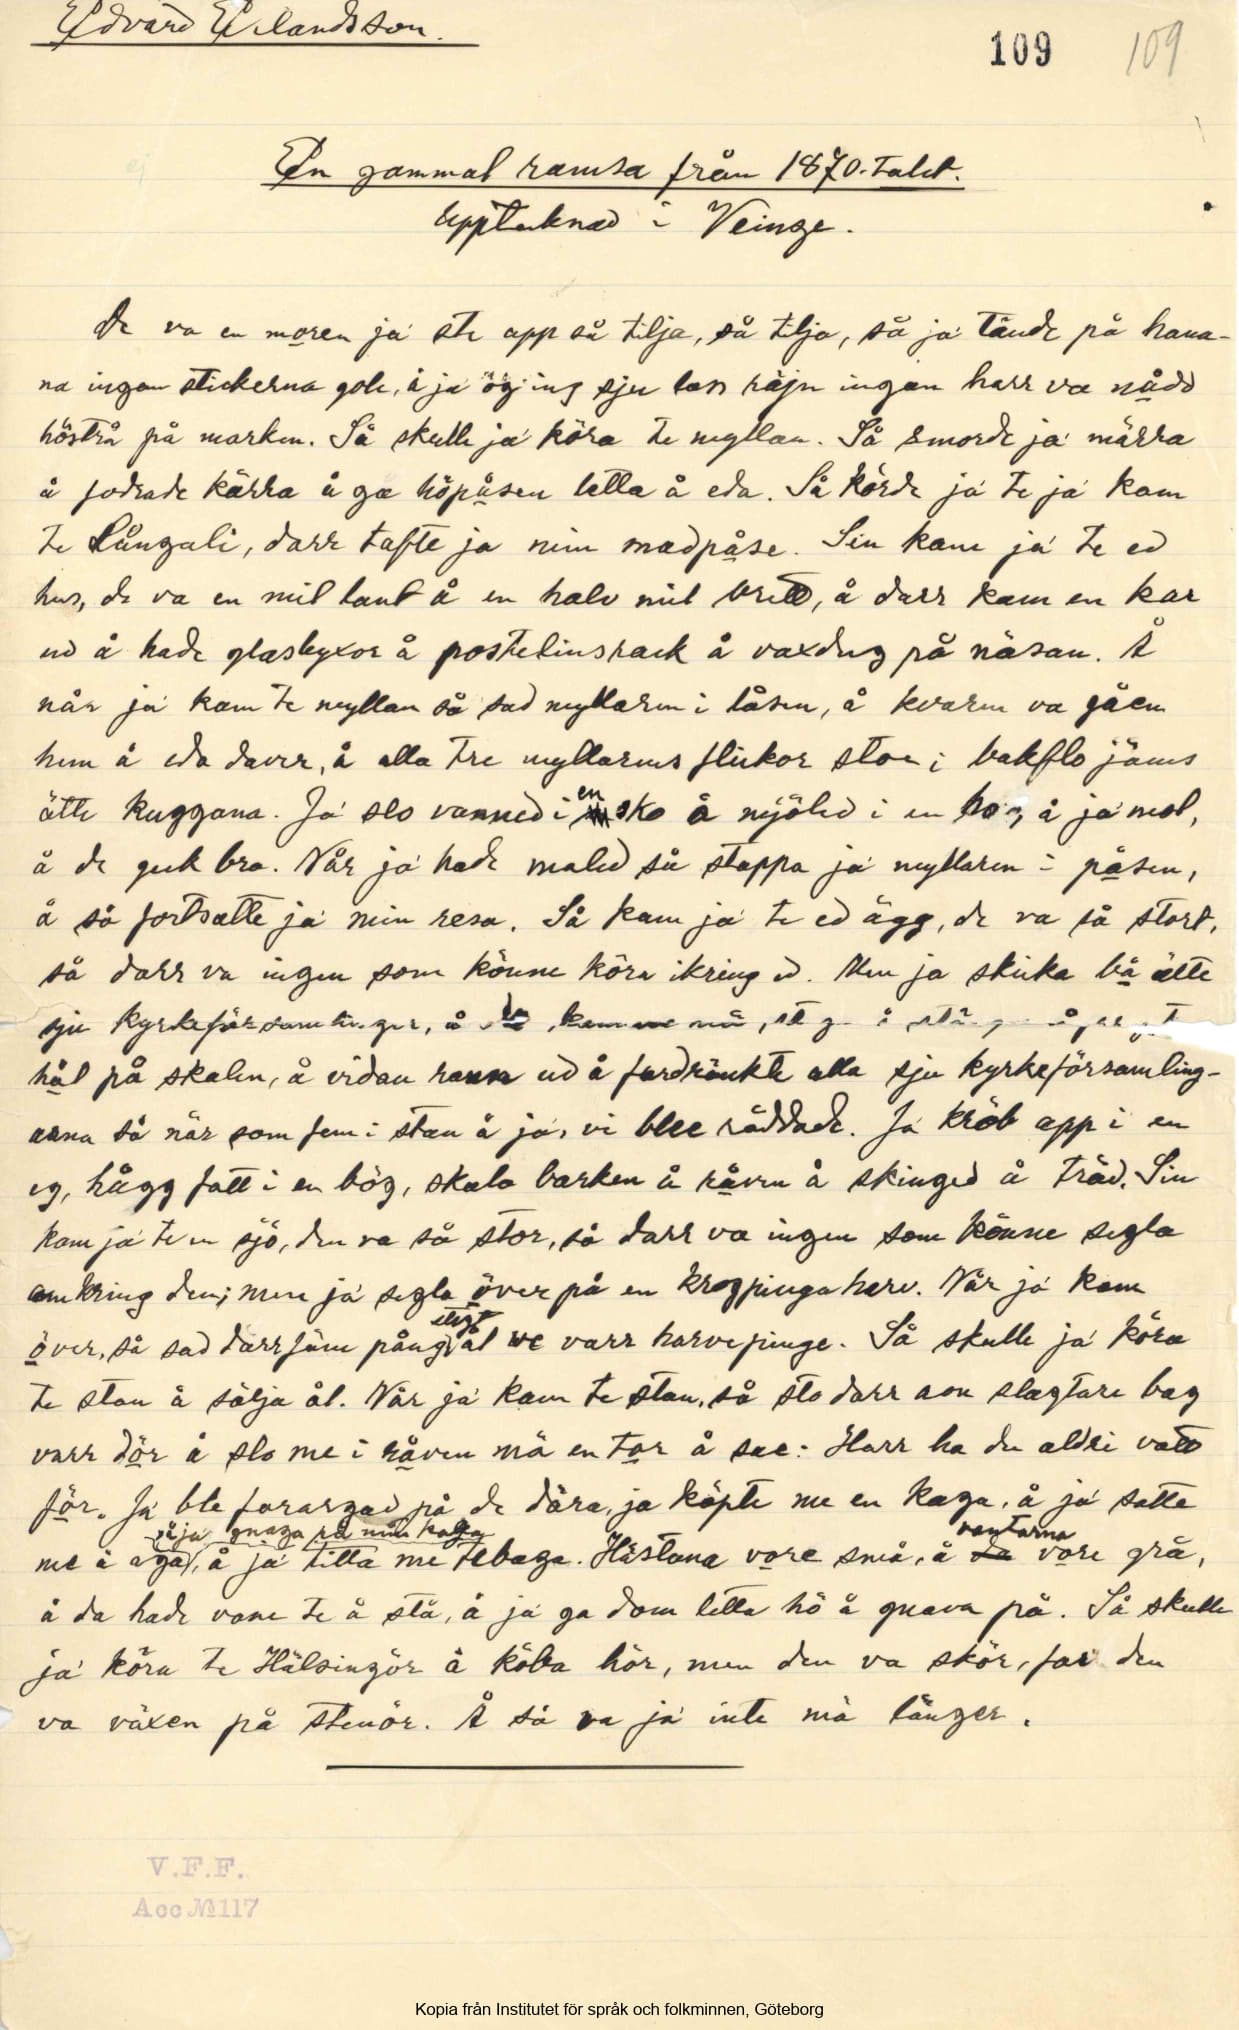 Edvard Erlandsson.
109 109
En gammal ramsa från 1870-talet.
Upptecknad i Veinge.
De va en moren ja' ste app så tilja, så tilja, så ja' tände på hana-
na ingan stickerna gole, å ja' ög ing sju lass räjn ingan harr va nådd
höstrå på marken. Så skulle ja' köra te myllan. Så smorde ja' märra
å fodrade kärra å ga höpåsen letta å eda. Så körde ja' te ja' kam
te Långali, darr tafte ja min madpåse. Sin kam ja' te ed
hus, de va en mil lant å en halv mil brett, å darr kam en kar
ud å hade glasbyxor å postelinsrack å vaxdug på näsan. Å
når ja' kam te myllan så sad myllaren i låsen, å kvarn va gåen
hem å eda daver, å alla tre myllarens flickor stoe i bakflo jäms
ätte kuggana. Ja' slo vanned i en sko å mjöled i en å ja' mol,
å de gick bra. Når ja' hade maled så stappa ja' myllaren i påsen,
å så fortsatte ja' min resa. Så kam ja' te ed ägg, de va så stort,
så darr va ingen som könne köra ikring ed. Men ja skicka bå ätte
sju kyrkeförsamlinger, å de kamme må
hål på skalen, å vidan rann ud å fordränkte alla sju kyrkeförsamling-
arna så när som fem i stan å ja', vi blee räddade. Ja' kröb app i en
eg, hågg fatt i en bög, skala barken å råven å skinged å träd. Sin
kam ja' te en sjö, den va så stor, så darr va ingen som könne segla
amkring den; men ja' segla över på en kroppinga harv. Når ja' kam
över, så sad darr fäm pång stegt ål ve varr harvepinge. Så skulle ja' köra
te stan å sälja ål. Når ja' kam te stan, så sto darr aon slagtare bag
varr dör å slo me i råven mä en tor å sae: Harr ha du aldri vatt
för. Ja' ble forargad på de dära, ja köpte me en kaga, å ja' satte
å ja' gnaga på min kaga vantarna
me å aga, å ja' titta me tebaga. Hästana vore små, å da vore grå,
å da hade vane te å stå, å ja' ga dom letta hö å gnava på. Så skulle
ja' köra te Hälsingör å köba hör, men den va skör, for den
va växen på stenör. Å så va ja' inte må länger.
V.F.F.
Acc № 117
Kopia från Institutet för språk och folkminnen, Göteborg